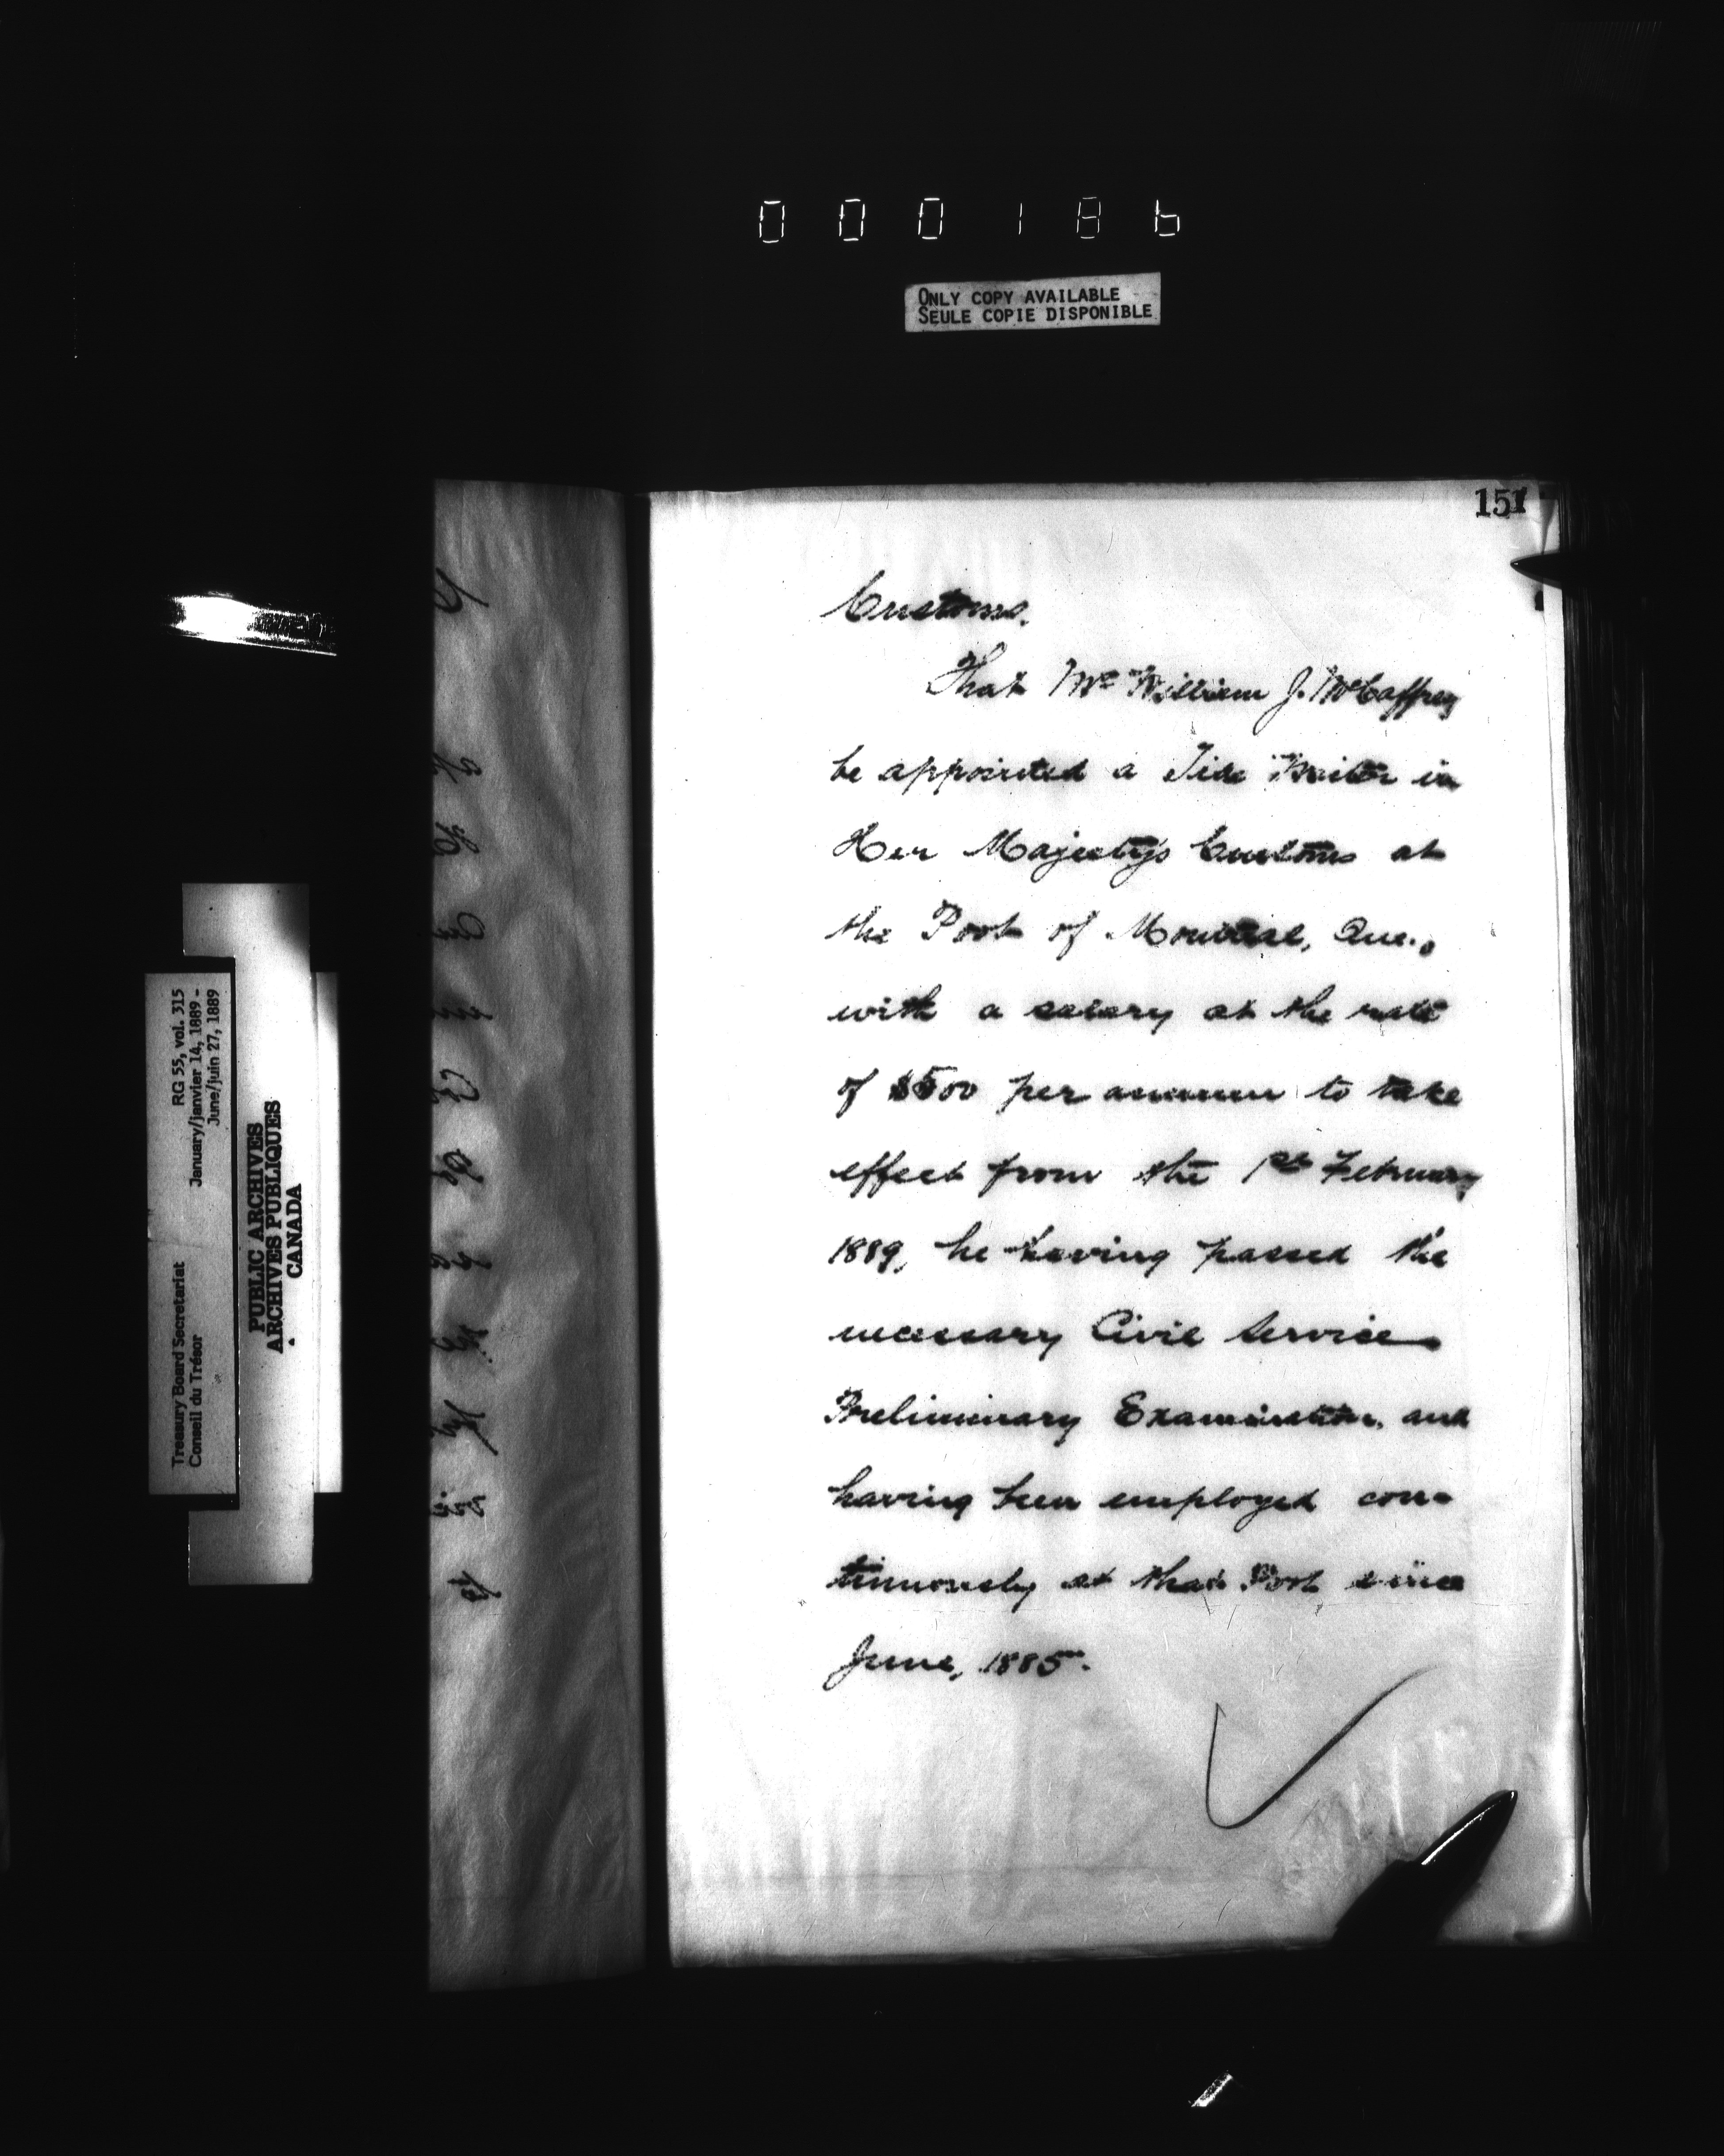 000186
ONLY COPY AVAILABLE
SEULE COPIE DISPONIBLE
151
Customs.
That Mr William J. McCaffrey
be appointed a Tide Waiter in
Her Majesty's Customs at
the Port of Montreal, Que.,
with a salary at the rate
of $500 per annum to take
effect from the 1st February
1889, he having passed the
necessary Civil Service
Preliminary Examination, and
having been employed con-
tinuously at that Port since
June, 1885.
Treasury Board Secretariat
Conseil du Trésor
RG 55, vol. 315
January/janvier 14, 1889 -
June/juin 27, 1889
PUBLIC ARCHIVES
ARCHIVES PUBLIQUES
CANADA